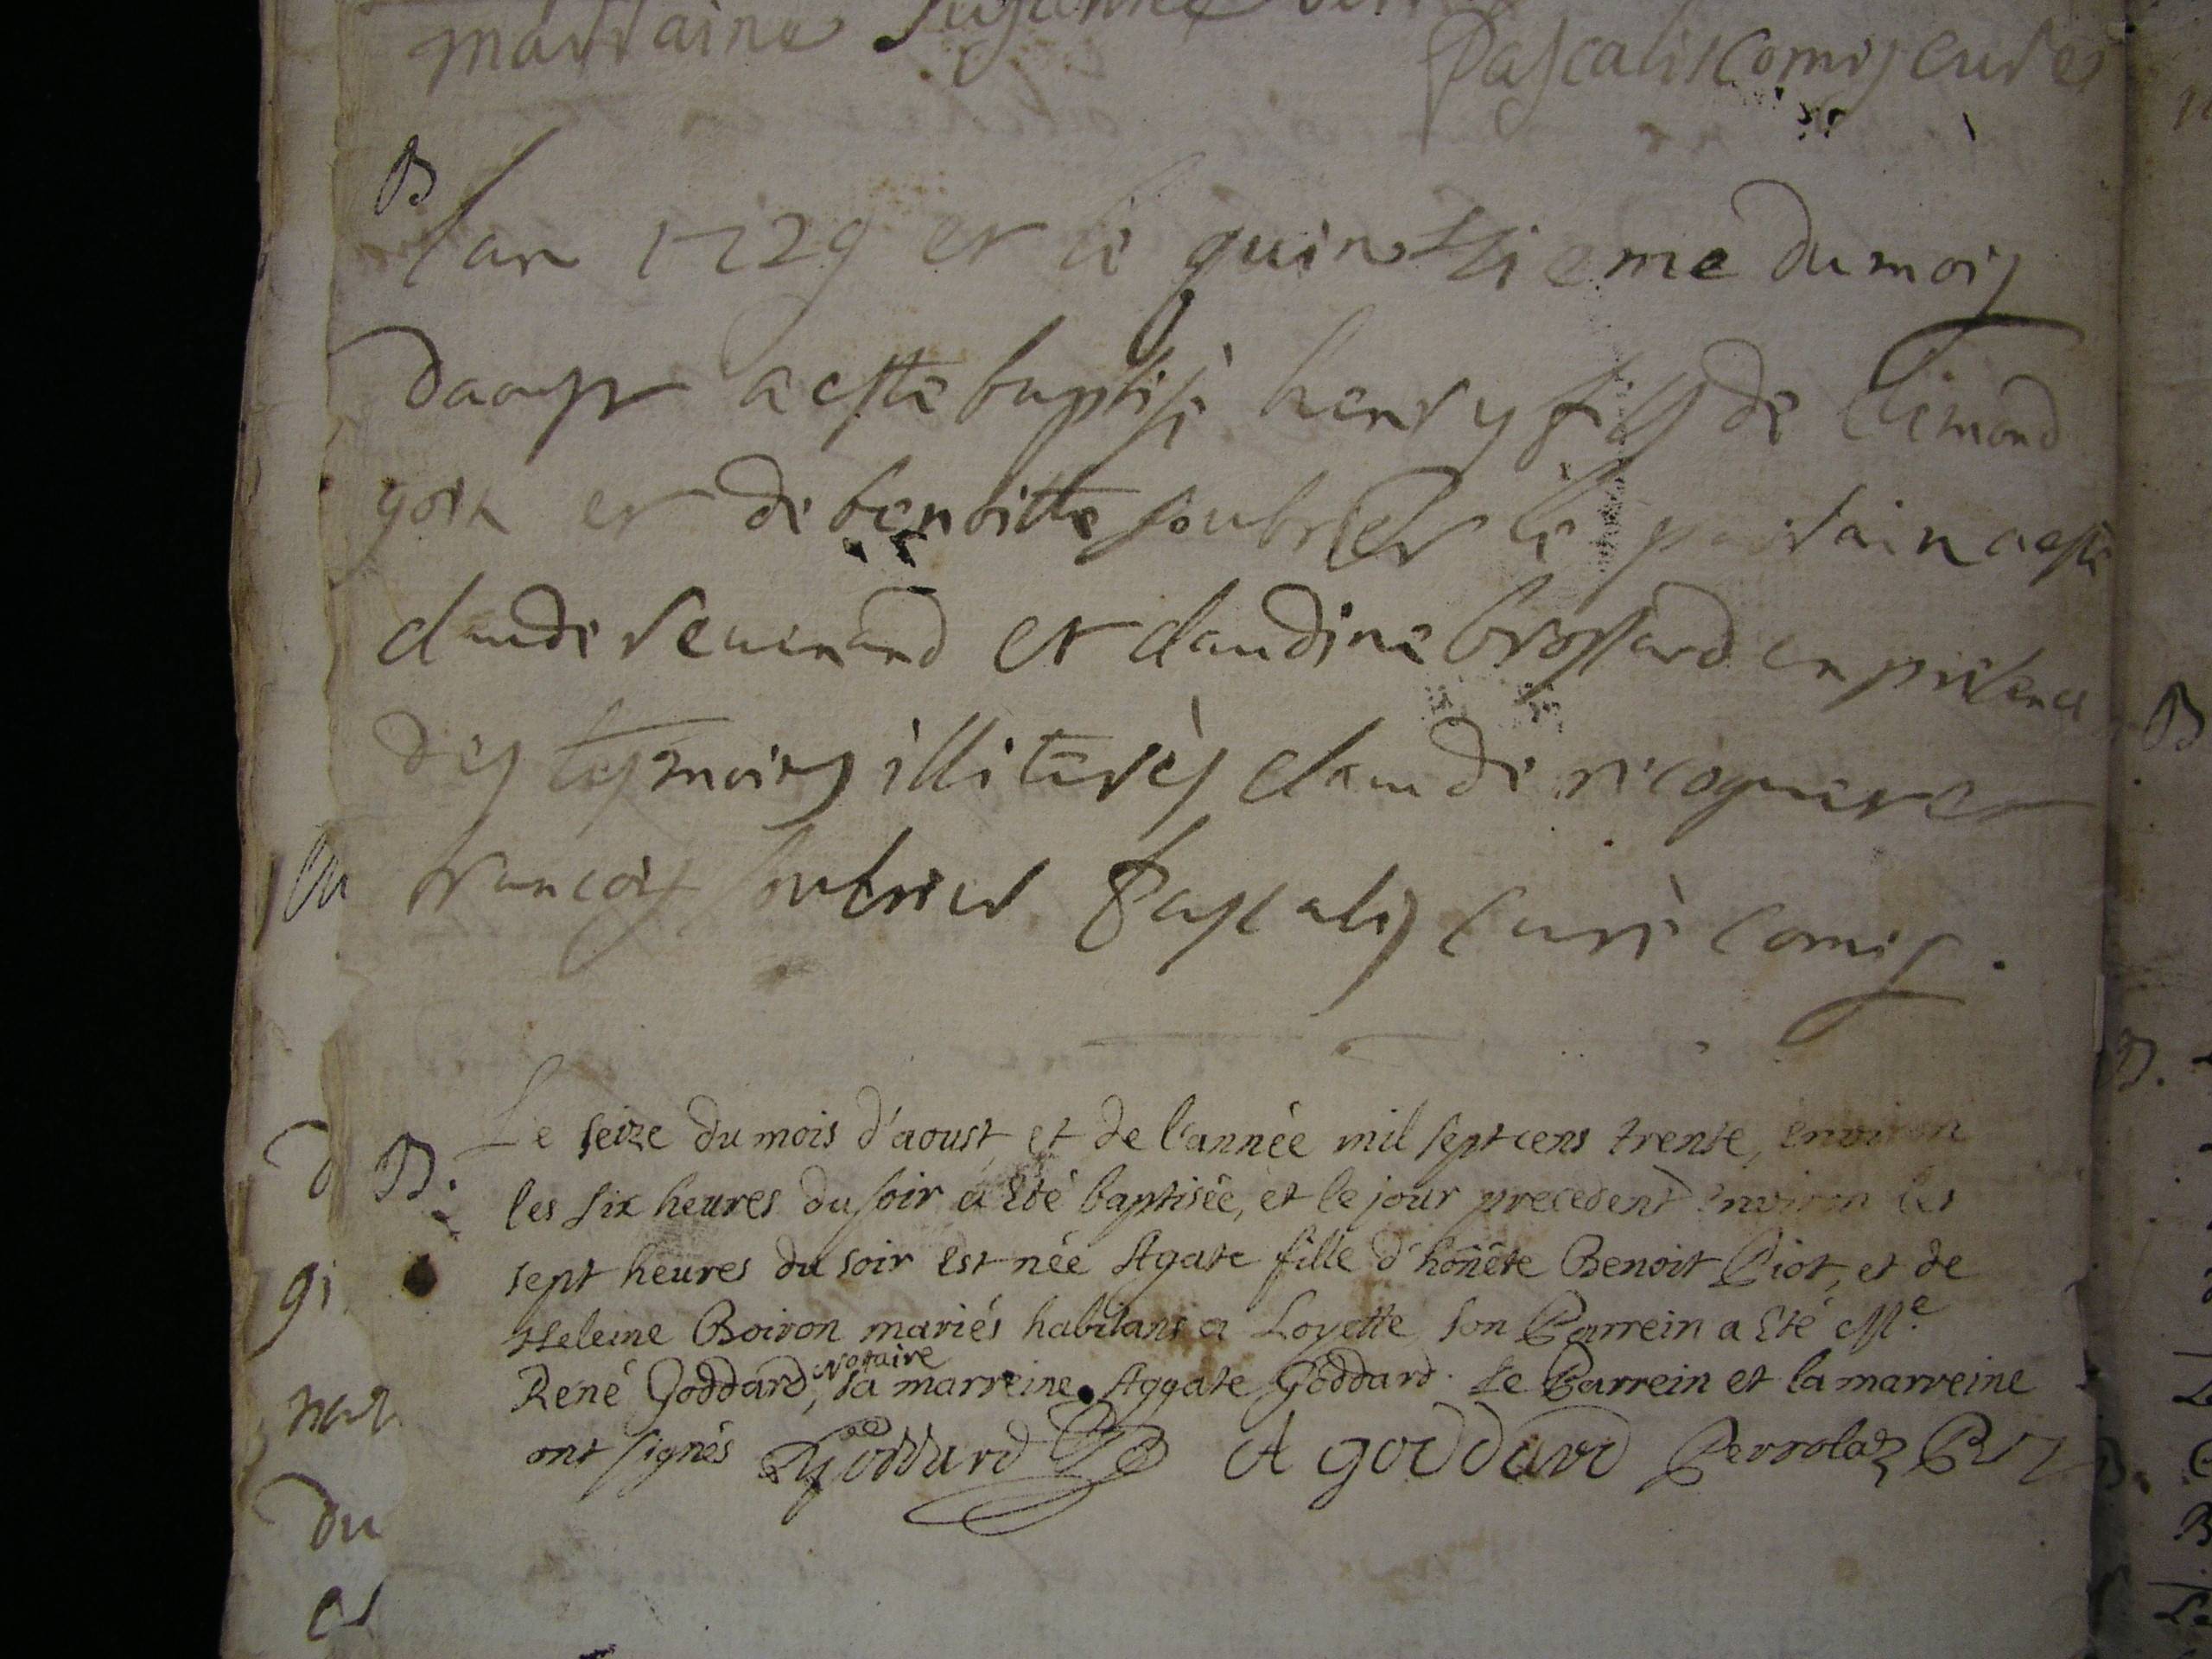 marraine Suzanne
Pascalis comis curé
B
lan 1729 et le quinsieme du mois
daoust a esté baptisé henry fils de
et de benoitte soubrier le parrain a esté
claude revenand et claudine brossard en presence
des tesmoins illiterés claude et
francois soubrier Pascalis curé comis.
B. Le seize du mois d'aoust, et de l'année mil sept cens trente, environ
les six heures du soir a été baptisée, et le jour precedent environ les
sept heures du soir est née Agate fille d'honête Benoit Piot, et de
Heleine Boiron mariés habitans a Loyette, son Parrein a été Me
René Goddard, Notaire sa marreine Aggate Goddard. Le Parrein et la marreine
ont signés RGoddard A goddard Perrolaz